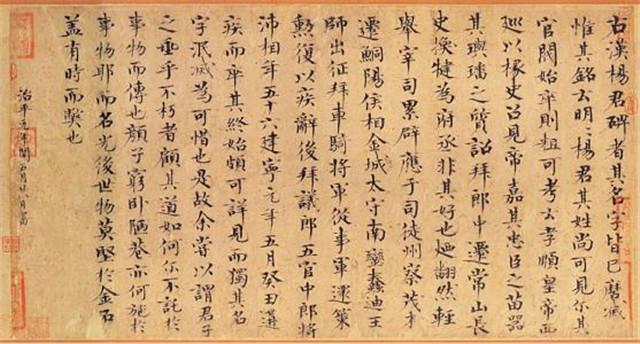 右漢楊君碑者其名字皆已磨滅
惟其銘云明明楊君其姓尚可見尔其
官閥始卒則粗可考云孝順皇帝西
巡以掾史召見帝嘉其忠臣之苗器
其璵璠之質詔拜郎中遷常山長
史換犍為府丞非其好也迺翻然輕
舉宰司累辟應于司徒州察茂才
遷鮦陽侯相金城太守南蠻蠢迪王
師出征拜車騎將軍從事軍還策
勳復以疾辭後拜議郎五官中郎將
沛相年五十六建寧元年五月癸丑遘
疾而卒其終始頗可詳見而獨其名
字泯滅為可惜也是故余嘗以謂君子
之垂乎不朽者顧其道如何尔不託於
事物而傳也顏子窮臥陋巷亦何施於
事物耶而名光後世物莫堅於金石
蓋有時而弊也
治平元年閏五月廿八日書